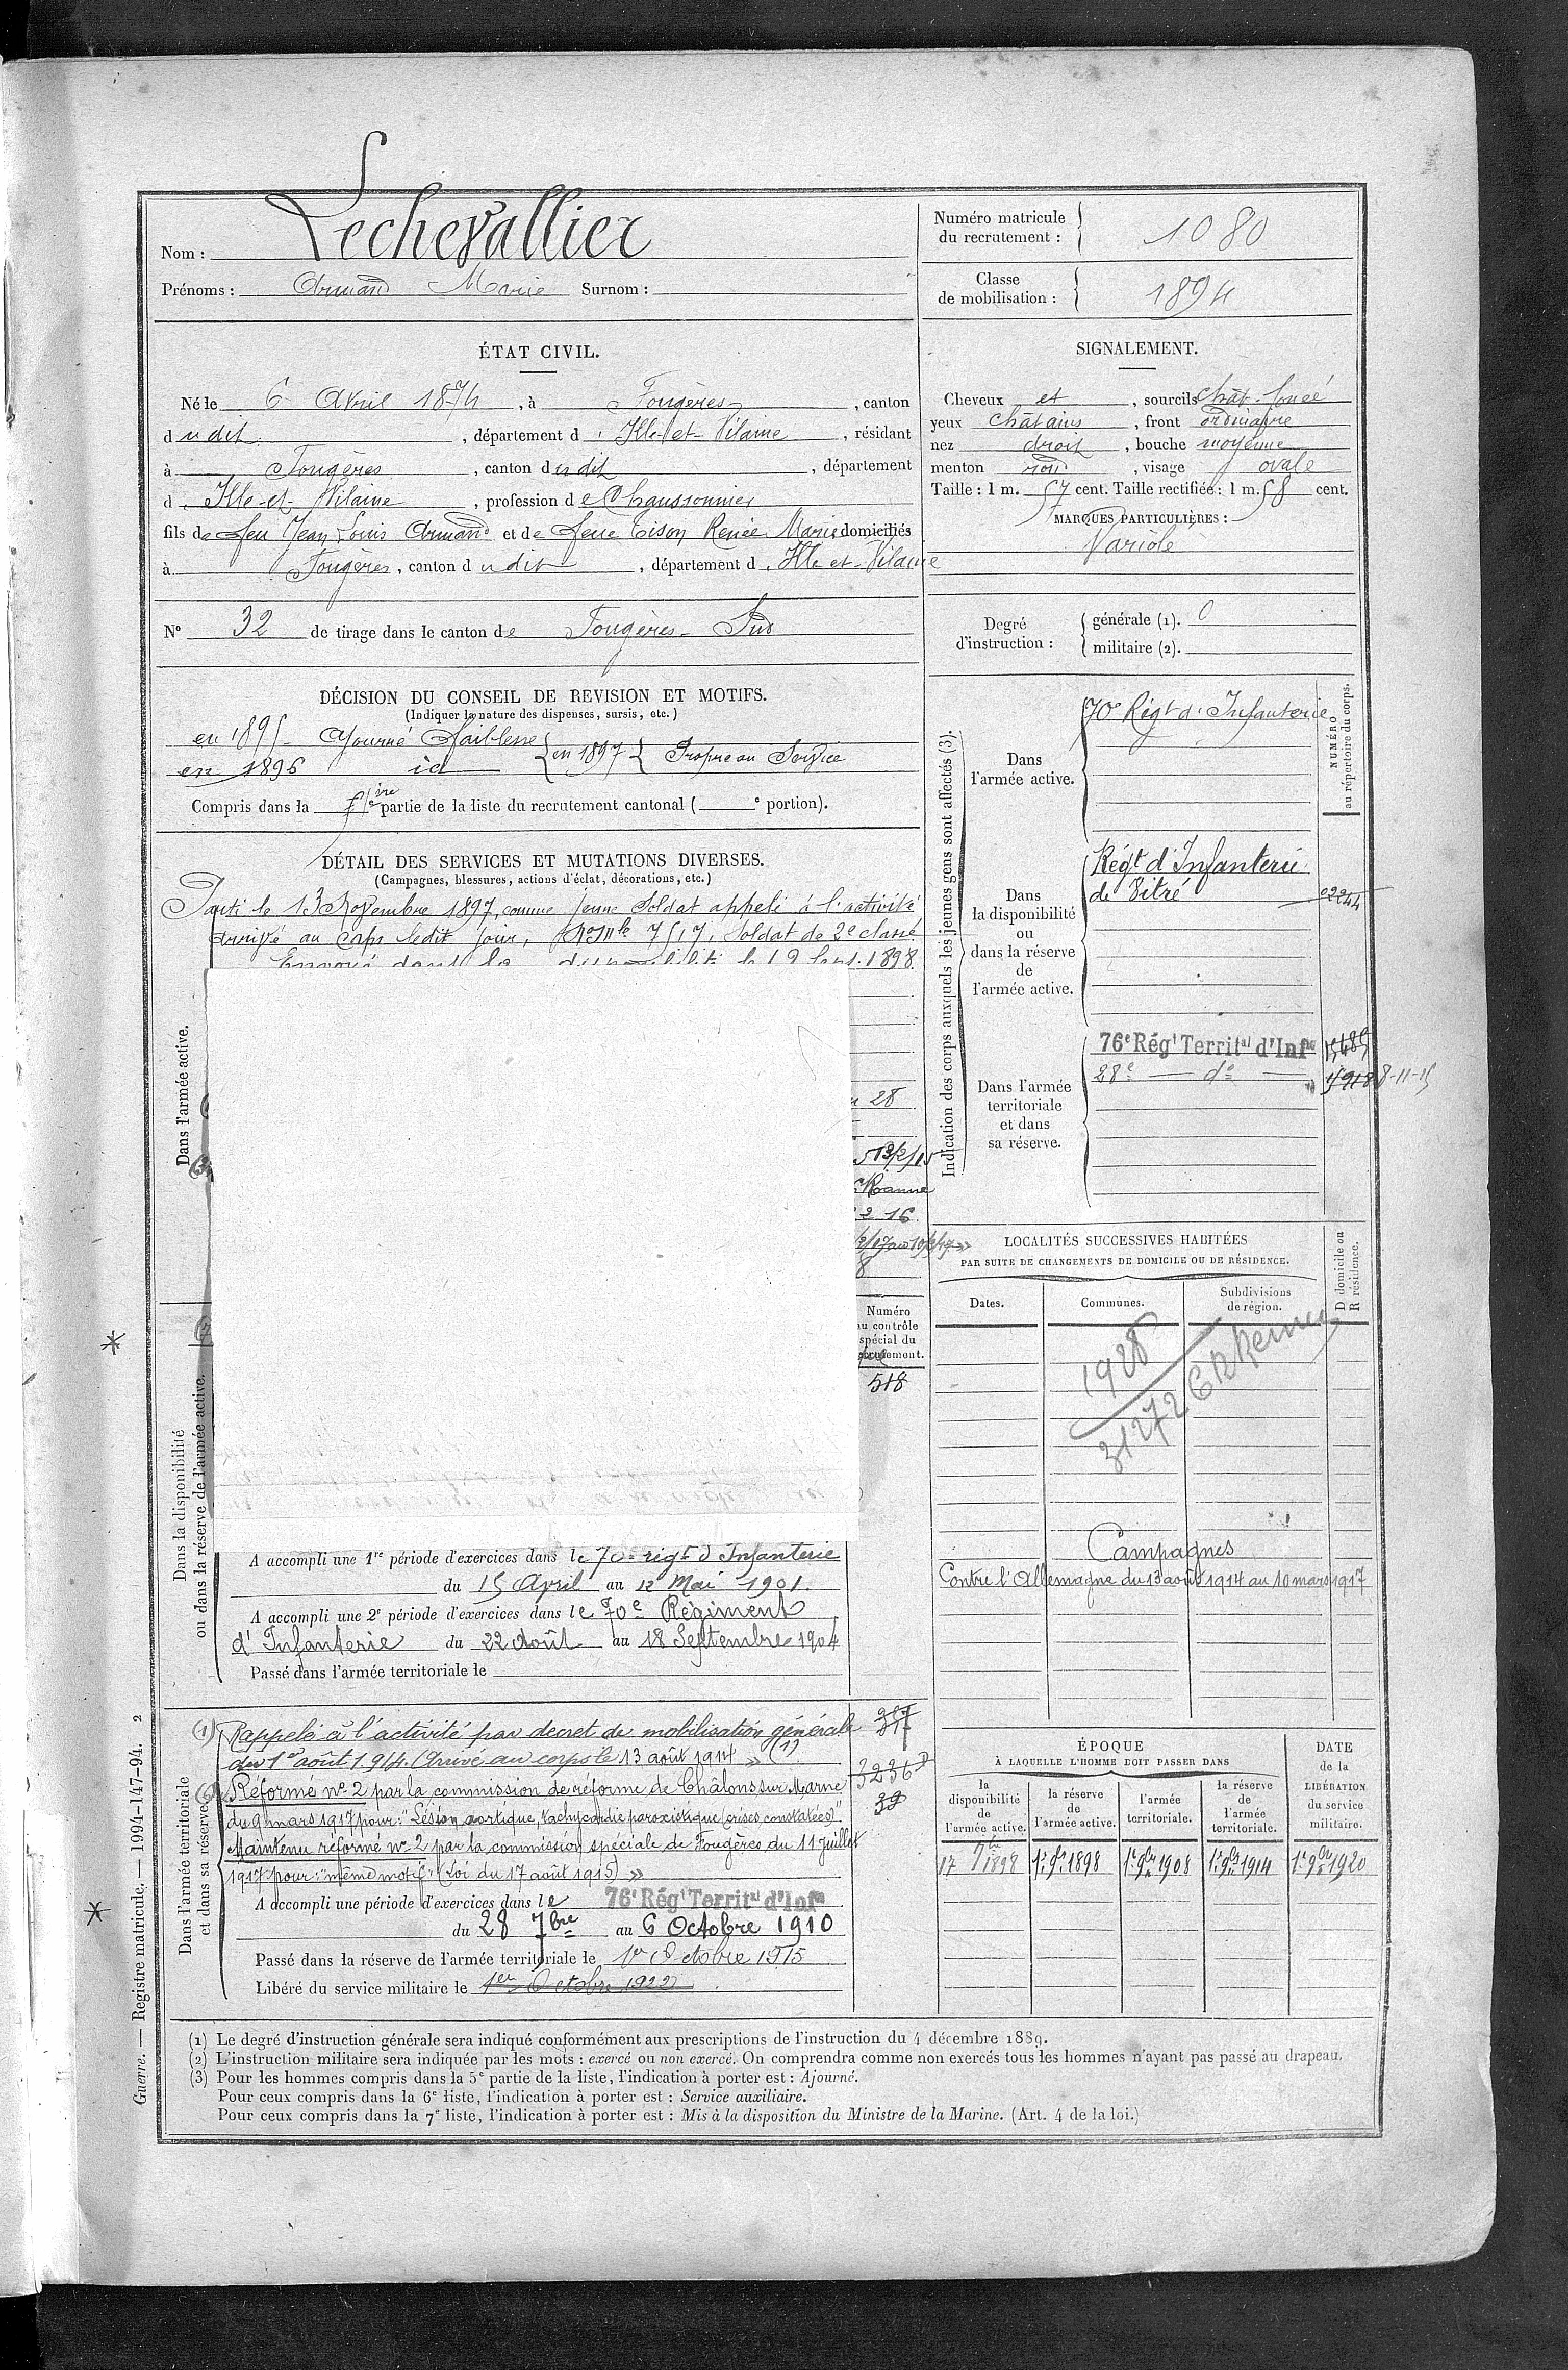 Nom : Lechevallier
Prénoms : Armand Marie Surnom :
Numéro matricule du recrutement : 1080
Classe de mobilisation : 1894
ÉTAT CIVIL.
Né le 6 Avril 1874, à Fougères, canton
dudit, département d'Ille-et-Vilaine, résidant
à Fougères, canton dudit, département
d'Ille-et-Vilaine, profession de Chaussonnier
fils de feu Jean Louis Armand et de feue Tison Renée Marie domiciliés
à Fougères, canton dudit, département d'Ille-et-Vilaine
N° 32 de tirage dans le canton de Fougères-Sud
SIGNALEMENT.
Cheveux et, sourcils chât. foncé
yeux châtains, front ordinaire
nez droit, bouche moyenne
menton rond, visage ovale
Taille : 1 m. 57 cent. Taille rectifiée : 1 m. 58 cent.
MARQUES PARTICULIÈRES :
Variole
Degré d'instruction : générale (1). 0
militaire (2).
DÉCISION DU CONSEIL DE REVISION ET MOTIFS.
(Indiquer la nature des dispenses, sursis, etc.)
en 1895 Ajourné Faiblesse
en 1896 id en 1897 Propre au Service
Compris dans la 1ère partie de la liste du recrutement cantonal ( e portion).
DÉTAIL DES SERVICES ET MUTATIONS DIVERSES.
(Campagnes, blessures, actions d'éclat, décorations, etc.)
Dans l'armée active.
Parti le 13 Novembre 1897, comme jeune Soldat appelé à l'activité
arrivé au corps ledit jour, No Mle 7517, Soldat de 2e classe
Envoyé dans la disponibilité le 1898
28
Roanne
2 16
8
Numéro
au contrôle
spécial du
recrutement.
518
Dans la disponibilité
ou dans la réserve de l'armée active.
A accompli une 1re période d'exercices dans le 70e régt d'Infanterie
du 15 Avril au 12 Mai 1901.
A accompli une 2e période d'exercices dans le 70e Régiment
d'Infanterie du 22 Août au 18 Septembre 1904
Passé dans l'armée territoriale le
Dans l'armée territoriale
et dans sa réserve.
(1) Rappelé à l'activité par décret de mobilisation générale
du 1er août 1914. Arrivé au corps le 13 août 1914 » (1)
Réformé no 2 par la commission de réforme de Châlons sur Marne
du 9 mars 1917 pour : "Lésion aortique, tachycardie paroxistique (crises constatées)".
Maintenu réformé no 2 par la commission spéciale de Fougères du 11 Juillet
1917 pour : "même motif" (Loi du 17 août 1915) »
317
3236
39
A accompli une période d'exercices dans le 76e Régt Territal d'Infie
du 28 7bre au 6 Octobre 1910
Passé dans la réserve de l'armée territoriale le 1er Octobre 1915
Libéré du service militaire le 1er Octobre 1922
Indication des corps auxquels les jeunes gens sont affectés (3).
NUMÉRO
au répertoire du corps.
Dans
l'armée active.
70e Régt d'Infanterie
Dans
la disponibilité
ou
dans la réserve
de
l'armée active.
Régt d'Infanterie
de Vitré
02244
Dans l'armée
territoriale
et dans
sa réserve.
76e Régt Territal d'Infie
28e — do —
8-11-15
LOCALITÉS SUCCESSIVES HABITÉES
PAR SUITE DE CHANGEMENTS DE DOMICILE OU DE RÉSIDENCE.
Dates. Communes. Subdivisions de région. D domicile ou R résidence.
1928
31272 CR Rennes
Campagnes
Contre l'Allemagne du 13 août 1914 au 10 mars 1917
ÉPOQUE
À LAQUELLE L'HOMME DOIT PASSER DANS
la disponibilité de l'armée active.
la réserve de l'armée active.
l'armée territoriale.
la réserve de l'armée territoriale.
DATE de la LIBÉRATION du service militaire.
17 7bre 1898 1er 9bre 1898 1er 9bre 1908 1er 9bre 1914 1er 9bre 1920
(1) Le degré d'instruction générale sera indiqué conformément aux prescriptions de l'instruction du 4 décembre 1889.
(2) L'instruction militaire sera indiquée par les mots : exercé ou non exercé. On comprendra comme non exercés tous les hommes n'ayant pas passé au drapeau.
(3) Pour les hommes compris dans la 5e partie de la liste, l'indication à porter est : Ajourné.
Pour ceux compris dans la 6e liste, l'indication à porter est : Service auxiliaire.
Pour ceux compris dans la 7e liste, l'indication à porter est : Mis à la disposition du Ministre de la Marine. (Art. 4 de la loi.)
Guerre. — Registre matricule. — 1994-147-94. 2